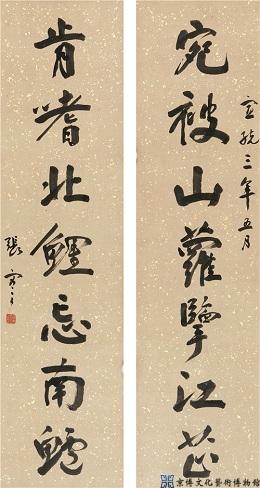 宣統三年五月
宛被山蘿擥江芷
肯嗜北鯉忘南鱸
張謇
京博文化藝術博物館